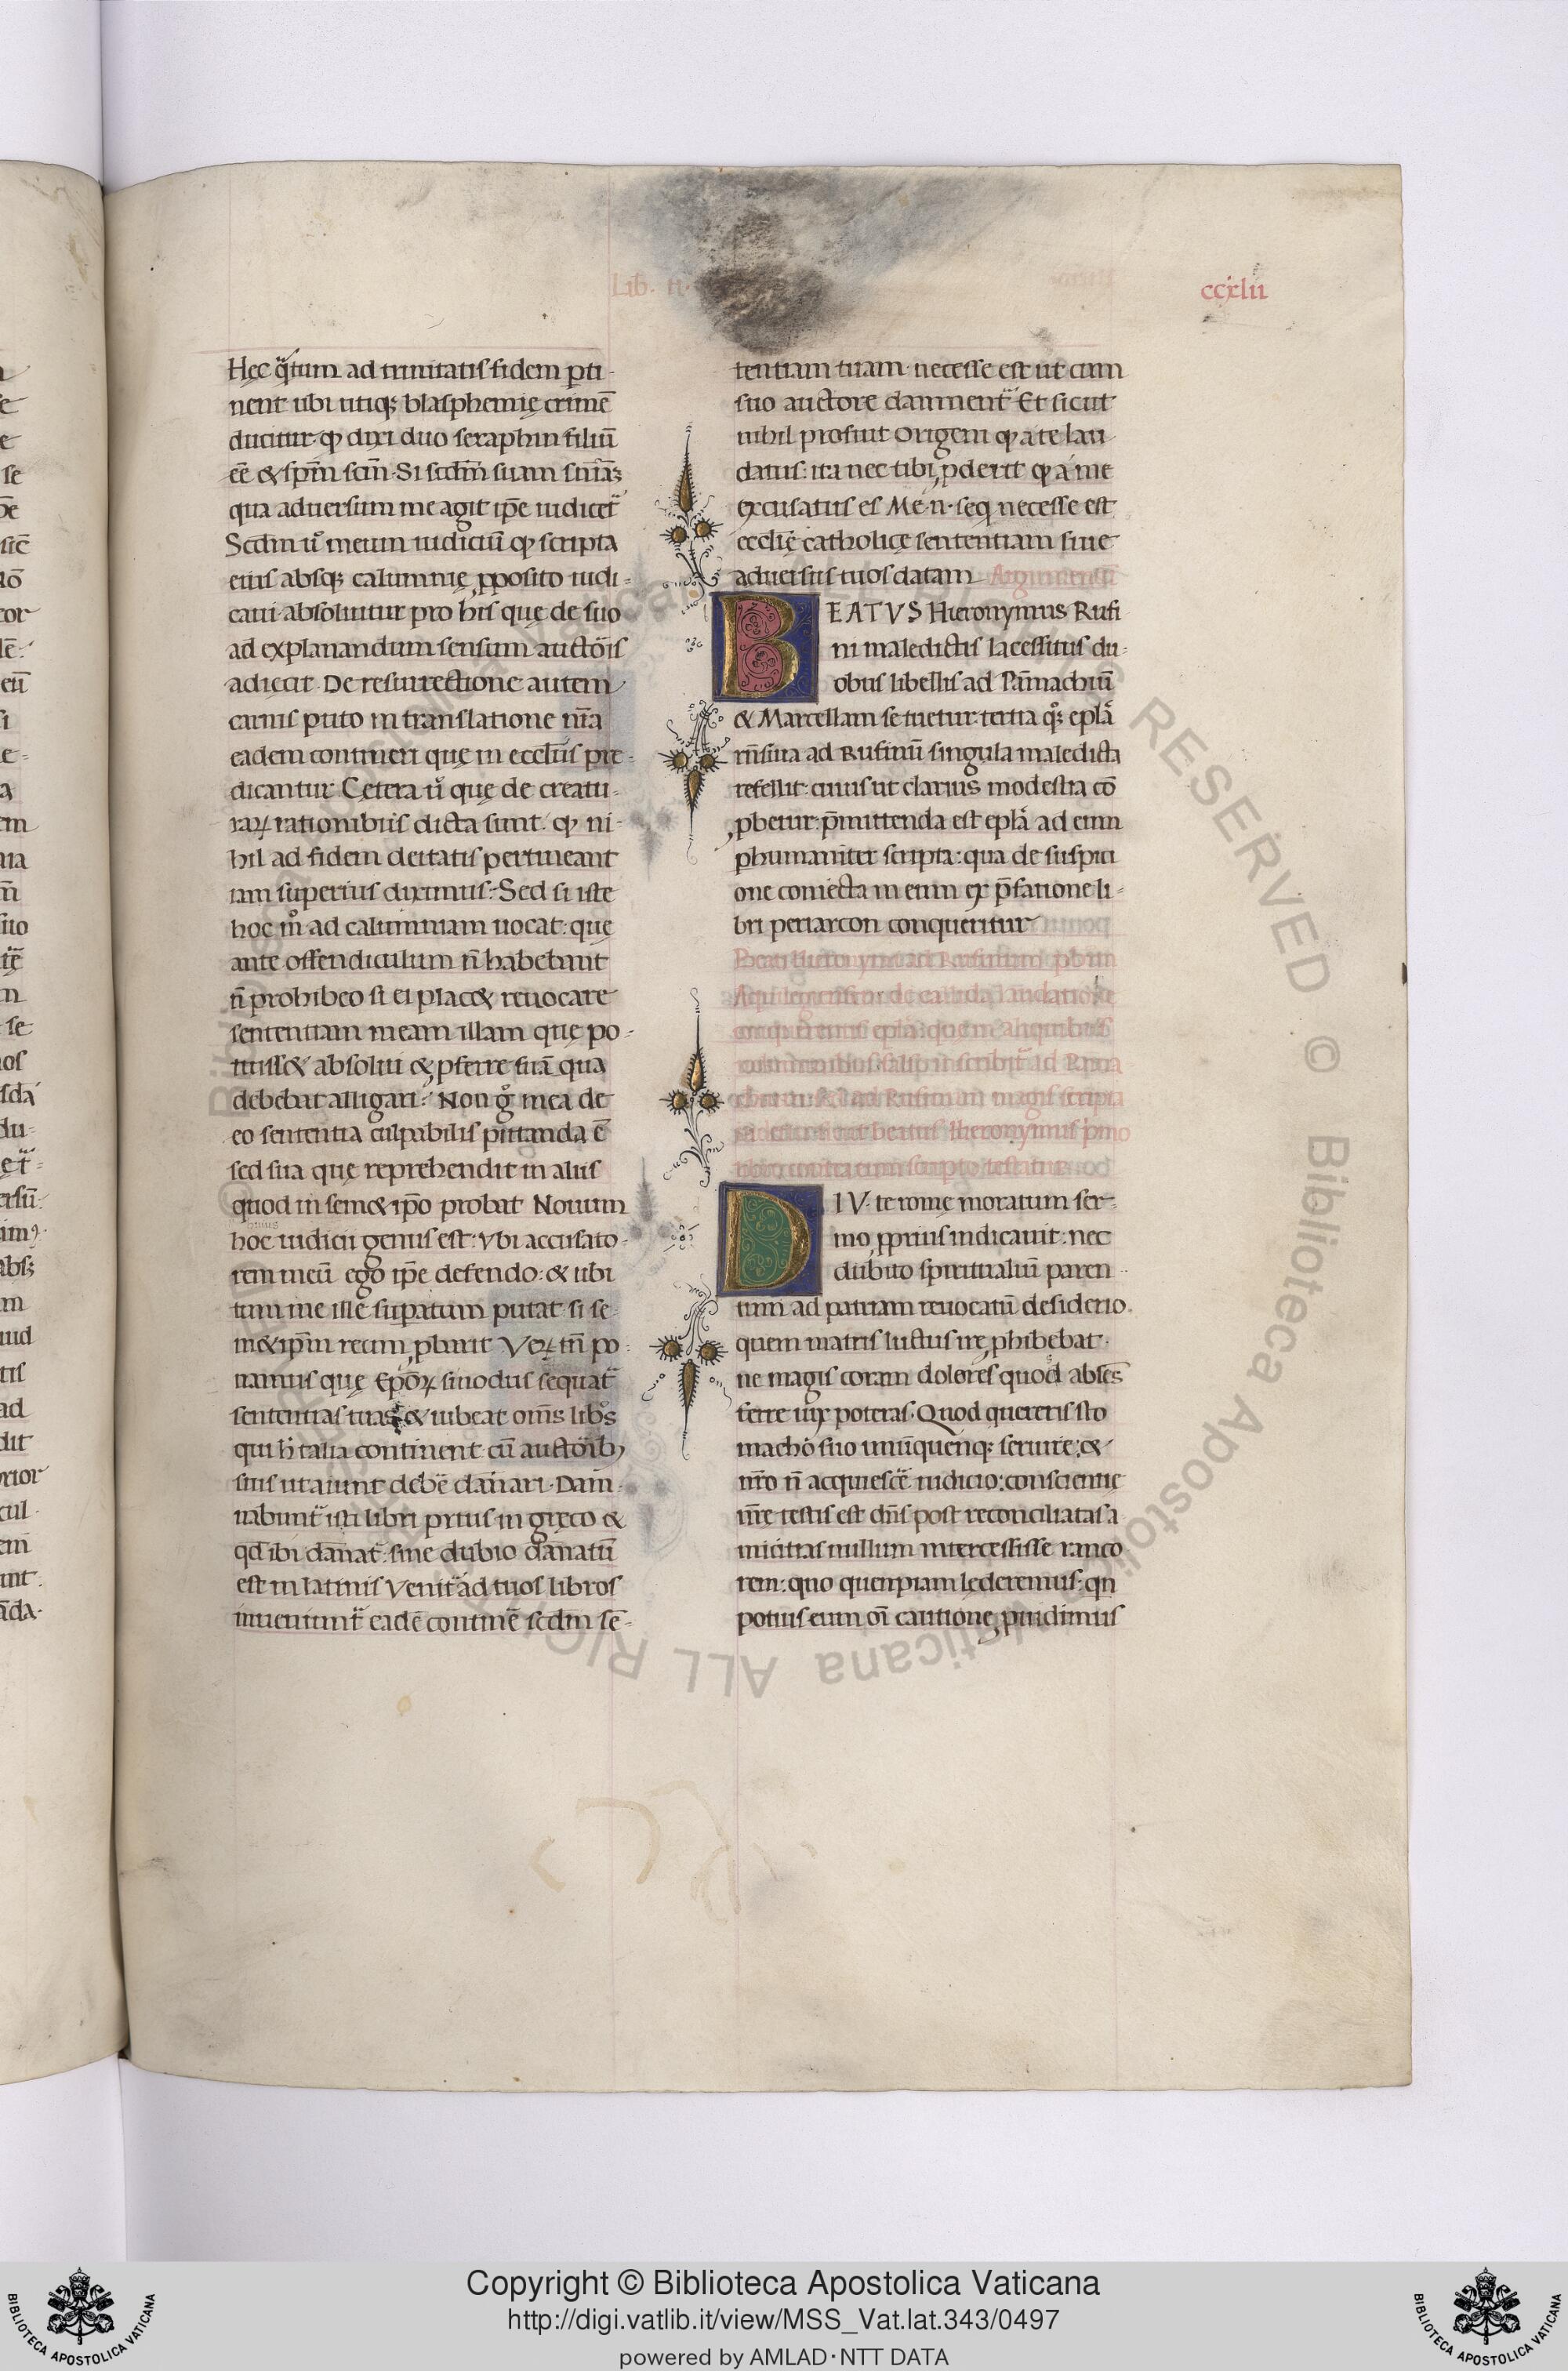 Lib. ii.
ccxlii
Hęc q̃tum ad trinitatis fidem ꝑti-
nent ubi utiqꝫ blasphemię crimē
ducitur ꝙ dixi duo seraphin filiū
eē & sp̄m sc̄m. Si scdm̄ suam sn̄iaꝫ
qua aduersum me agit ip̄e iudicet᷑
Scdm u̅ meum iudiciū ꝙ scripta
eius absqꝫ calumnię ꝓposito iudi-
caui absoluitur pro his quę de suo
ad explanandum sensum auctoris
adiecit. De resurrectione autem
carnis puto in translatione nr̄a
eadem contineri quę in ecclīis prę-
dicantur. Cętera u̅ quę de creatu-
raꝝ rationibus dicta sunt. ꝙ ni-
hil ad fidem deitatis pertineant
iam superius diximus. Sed si iste
hoc m̊ ad calumniam uocat: quę
ante offendiculum n̄ habebant
n̄ prohibeo si ei plac& reuocare
sententiam meam illam quę po-
tuiss& absolui & ꝓferre suā qua
debebat alligari. Non g̊ mea de
eo sententia culpabilis putanda ē
sed sua quę reprehendit in aliis
quod in sem&ip̄o probat Nouum
hoc iudicii genus est: vbi accusato-
rem meū ego ip̄e defendo: & ubi
tum me ille supatum putat si se
m&ip̄m reum ꝓbarit Veꝝ tn̄ po-
namus quę Ep̄oꝝ sinodus sequat᷑
sententias tuas & iubeat om̄s libros
qui h̄ talia continent cū auctorib;
suis ut aiunt debē dānari. Dam-
nabunt᷑ isti libri prius in gręco &
qd̄ ibi dānat᷑. sine dubio dānatū
est in latinis Venit᷑ ad tuos libros
inueniunt᷑ eadē continē scdm sē-
tentiam tuam necesse est ut cum
suo auctore damnent᷑ Et sicut
nihil profuit Origem ꝙ a te lau
datus: ita nec tibi ꝓderit ꝙ a me
excusatus es Me. n. seq necesse est
ecclię catholicę sententiam siue
aduersus tuos datam Argumentū
BEATVS Hieronymus Rufi
ni maledictis lacessitus du-
obus libellis ad Pāmachiū
& Marcellam se tuetur: tertia qꝫ epl̄a
rn̄siua ad Rufinū singula maledicta
refellit: cuius ut clarius modestia cō
ꝓbetur: p̄mittenda est epl̄a ad eum
ꝑhumaniter scripta: qua de suspici
one coniecta in eum ex p̄fatione li-
bri periarcon conqueritur
DIV. te romę moratum ser-
mo ꝓprius indicauit: nec
dubito spiritualiū paren
tum ad patriam reuocatū desiderio.
quem matris luctus ire ꝓhibebat.
ne magis coram doleres quod absēs
ferre uix poteras. Quod quereris sto
macho suo unūquenqꝫ seruire: &
nr̄o n̄ acquiescē iudicio: conscientię
nr̄ę testis est dn̄s post reconciliatas a
micitias nullum intercessisse ranco
rem: quo quenpiam lęderemus: qn
potius eum oī cautione ꝓuidimus
Copyright © Biblioteca Apostolica Vaticana
http://digi.vatlib.it/view/MSS_Vat.lat.343/0497
powered by AMLAD·NTT DATA